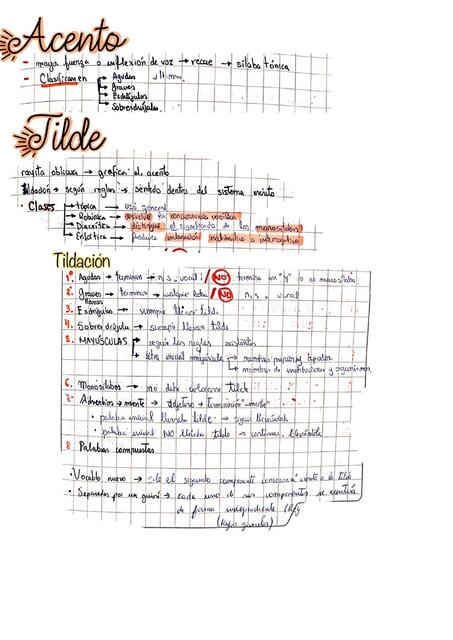 Acento
- maya fuerza o inflexión de voz → recae → sílaba tónica
- Clasifican en → Agudas
→ graves
→ Esdrújulas
→ Sobresdrújulas.
Tilde
rayita oblicua → grafica el acento
tildación → según reglas → sentido dentro del sistema escrito
• Clases → tópica → uso general
→ Robúrica → desvuelve la concurrencia vocálica
→ Diacrítica → distingue el significado de los monosílabos
→ Enfática → produce entonación exclamativa o interrogativa
Tildación
1.° Agudas → terminan → n, s, vocal / NO termina en "y" o es monosílaba
2.° graves → terminan → cualquier letra / NO n, s, vocal
llanas
3. Esdrújula → siempre llevan tilde
4. Sobresdrújula → siempre llevan tilde
5. MAYÚSCULAS → seguir las reglas existentes
→ letra inicial mayúscula → nombres propios y apodos
→ nombres de institucion y organismos.
6. Monosílabos → no debe colocarse tilde
7- Adverbios → mente → adjetivo + terminación "-mente"
• palabra inicial llevaba tilde → sigue llevándola
• palabra inicial NO llevaba tilde → continua llevándola
8 Palabras compuestas
• Vocablo nuevo → solo el segundo componente conservará acento o la tilde
• Separados por un guión → cada uno de sus componentes se
de forma independiente (Rey
(Regla general)